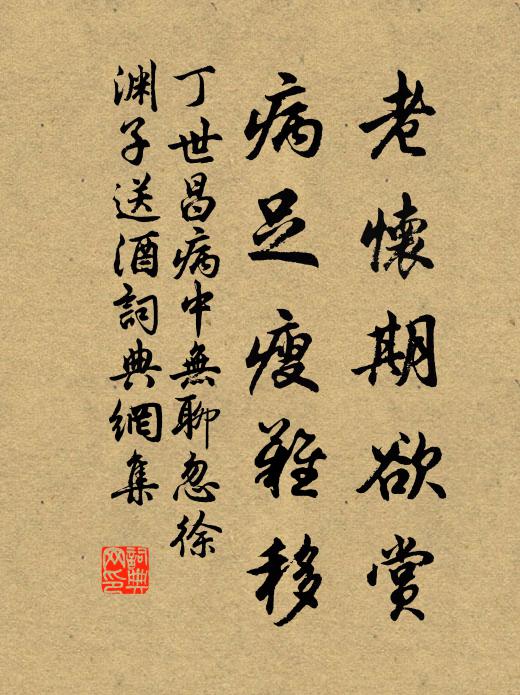 老懷期欲賞
病足瘦難移
丁世昌病中無聊忽徐
淵子送酒詞典網集
詞典
网印